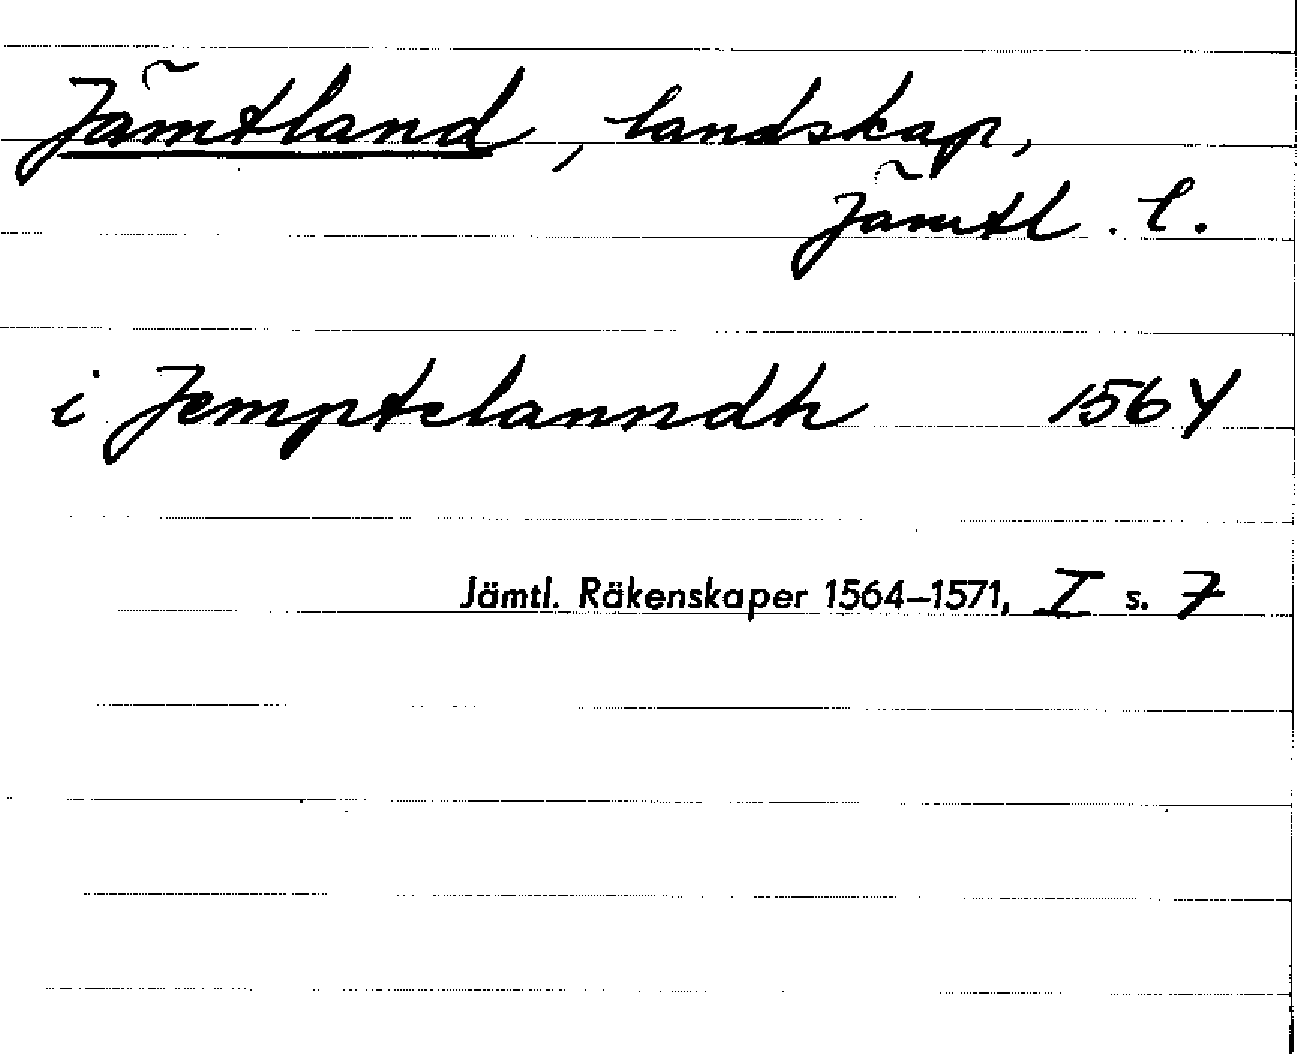 Jämtland, landskap,
Jämtl. l.
i Jemptelanndh 1564
Jämtl. Räkenskaper 1564–1571, I s. 7